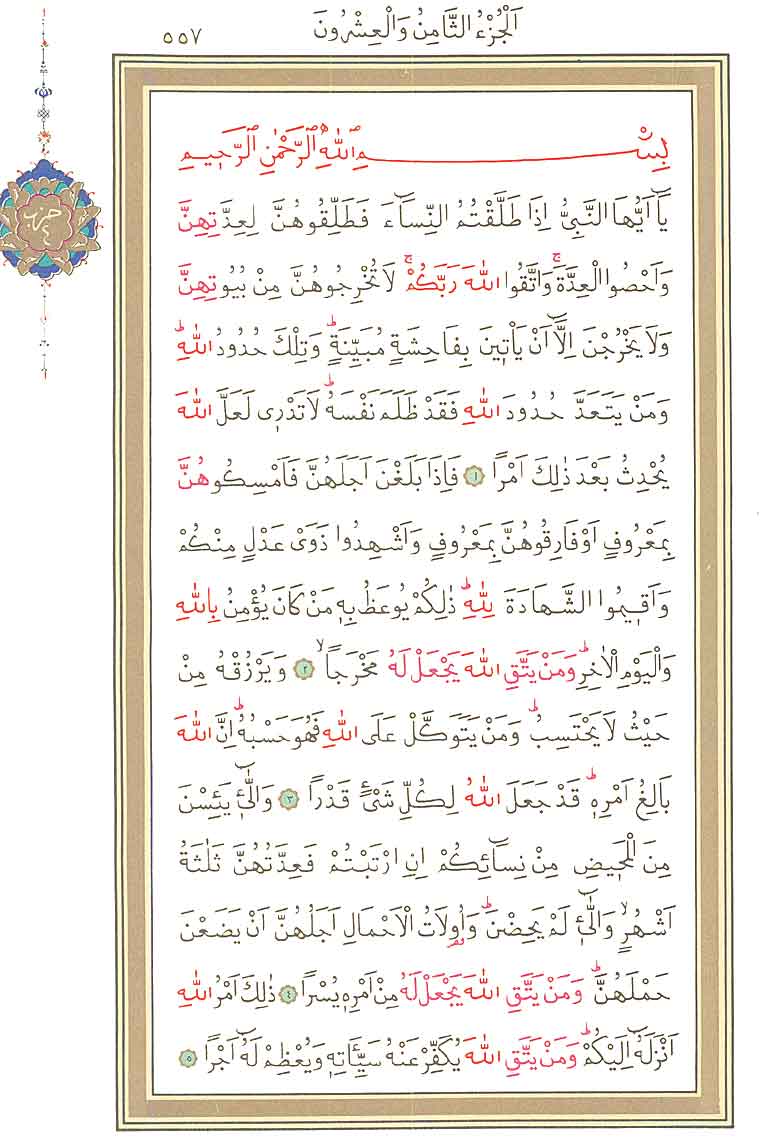 اَلْجُزْءُ الثَّامِنُ وَالْعِشْرُونَ
٥٥٧
حزب
٤
بِسْمِ اللّٰهِ الرَّحْمٰنِ الرَّح۪يمِ
يَٓا اَيُّهَا النَّبِيُّ اِذَا طَلَّقْتُمُ النِّسَٓاءَ فَطَلِّقُوهُنَّ لِعِدَّتِهِنَّ
وَاَحْصُوا الْعِدَّةَۚ وَاتَّقُوا اللّٰهَ رَبَّكُمْۚ لَا تُخْرِجُوهُنَّ مِنْ بُيُوتِهِنَّ
وَلَا يَخْرُجْنَ اِلَّٓا اَنْ يَأْت۪ينَ بِفَاحِشَةٍ مُبَيِّنَةٍۜ وَتِلْكَ حُدُودُ اللّٰهِۜ
وَمَنْ يَتَعَدَّ حُدُودَ اللّٰهِ فَقَدْ ظَلَمَ نَفْسَهُۜ لَا تَدْر۪ي لَعَلَّ اللّٰهَ
يُحْدِثُ بَعْدَ ذٰلِكَ اَمْرًا ﴿١﴾ فَاِذَا بَلَغْنَ اَجَلَهُنَّ فَاَمْسِكُوهُنَّ
بِمَعْرُوفٍ اَوْ فَارِقُوهُنَّ بِمَعْرُوفٍ وَاَشْهِدُوا ذَوَيْ عَدْلٍ مِنْكُمْ
وَاَق۪يمُوا الشَّهَادَةَ لِلّٰهِۜ ذٰلِكُمْ يُوعَظُ بِه۪ مَنْ كَانَ يُؤْمِنُ بِاللّٰهِ
وَالْيَوْمِ الْاٰخِرِۜ وَمَنْ يَتَّقِ اللّٰهَ يَجْعَلْ لَهُ مَخْرَجًاۙ ﴿٢﴾ وَيَرْزُقْهُ مِنْ
حَيْثُ لَا يَحْتَسِبُۜ وَمَنْ يَتَوَكَّلْ عَلَى اللّٰهِ فَهُوَ حَسْبُهُۜ اِنَّ اللّٰهَ
بَالِغُ اَمْرِه۪ۜ قَدْ جَعَلَ اللّٰهُ لِكُلِّ شَيْءٍ قَدْرًا ﴿٣﴾ وَالّٰٓئ۪ يَئِسْنَ
مِنَ الْمَح۪يضِ مِنْ نِسَٓائِكُمْ اِنِ ارْتَبْتُمْ فَعِدَّتُهُنَّ ثَلٰثَةُ
اَشْهُرٍۙ وَالّٰٓئ۪ لَمْ يَحِضْنَۜ وَاُو۬لَاتُ الْاَحْمَالِ اَجَلُهُنَّ اَنْ يَضَعْنَ
حَمْلَهُنَّۜ وَمَنْ يَتَّقِ اللّٰهَ يَجْعَلْ لَهُ مِنْ اَمْرِه۪ يُسْرًا ﴿٤﴾ ذٰلِكَ اَمْرُ اللّٰهِ
اَنْزَلَهُٓ اِلَيْكُمْۜ وَمَنْ يَتَّقِ اللّٰهَ يُكَفِّرْ عَنْهُ سَيِّـَٔاتِه۪ وَيُعْظِمْ لَهُٓ اَجْرًا ﴿٥﴾